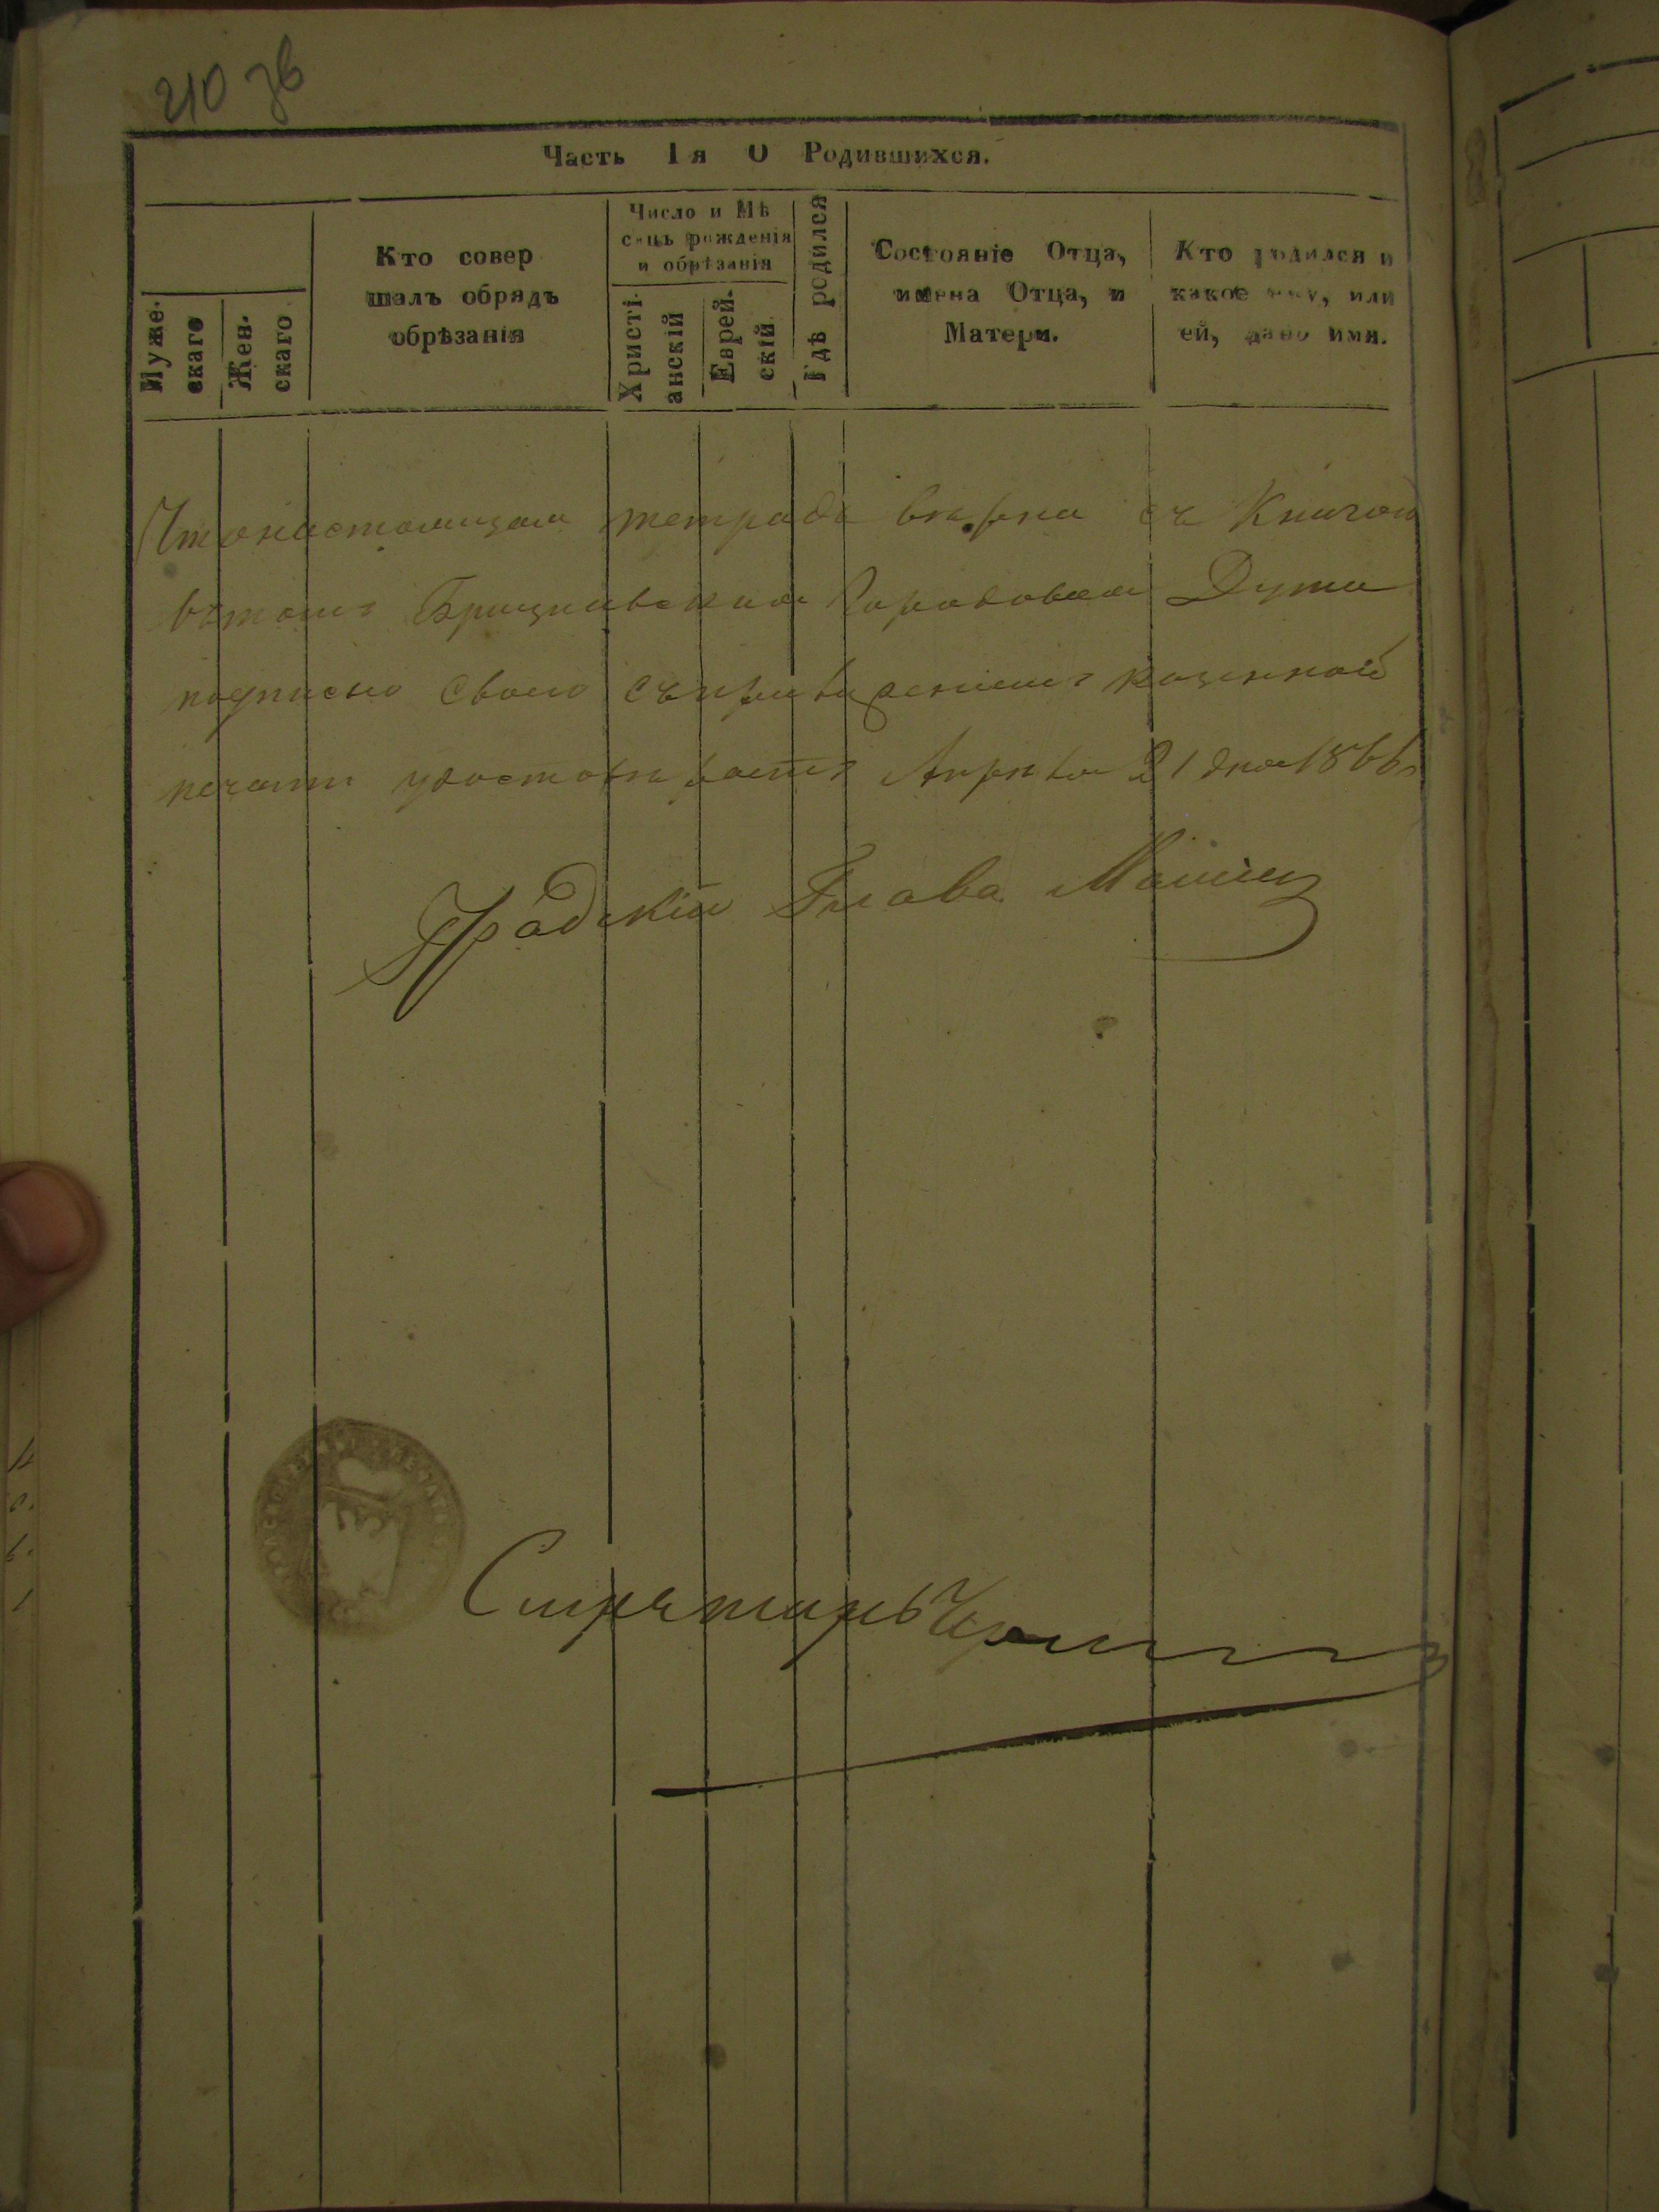 210 зв
Часть 1я О Родившихся.
Муже-
скаго
Жен-
скаго
Кто совер
шалъ обрядъ
обрѣзанія
Число и Мѣ
сяцъ рожденія
и обрѣзанія
Христі-
анскій
Еврей-
скій
Гдѣ родился
Состояніе Отца,
имена Отца, и
Матери.
Кто родился и
какое ему, или
ей, дано имя.
Что настоящая тетрадь вѣрна съ Книгою
въ томъ Городовая Дума
подписью своею съ приложеніемъ казенной
печати удостовѣряетъ Апрѣля 21 дня 1866
Градскій Глава